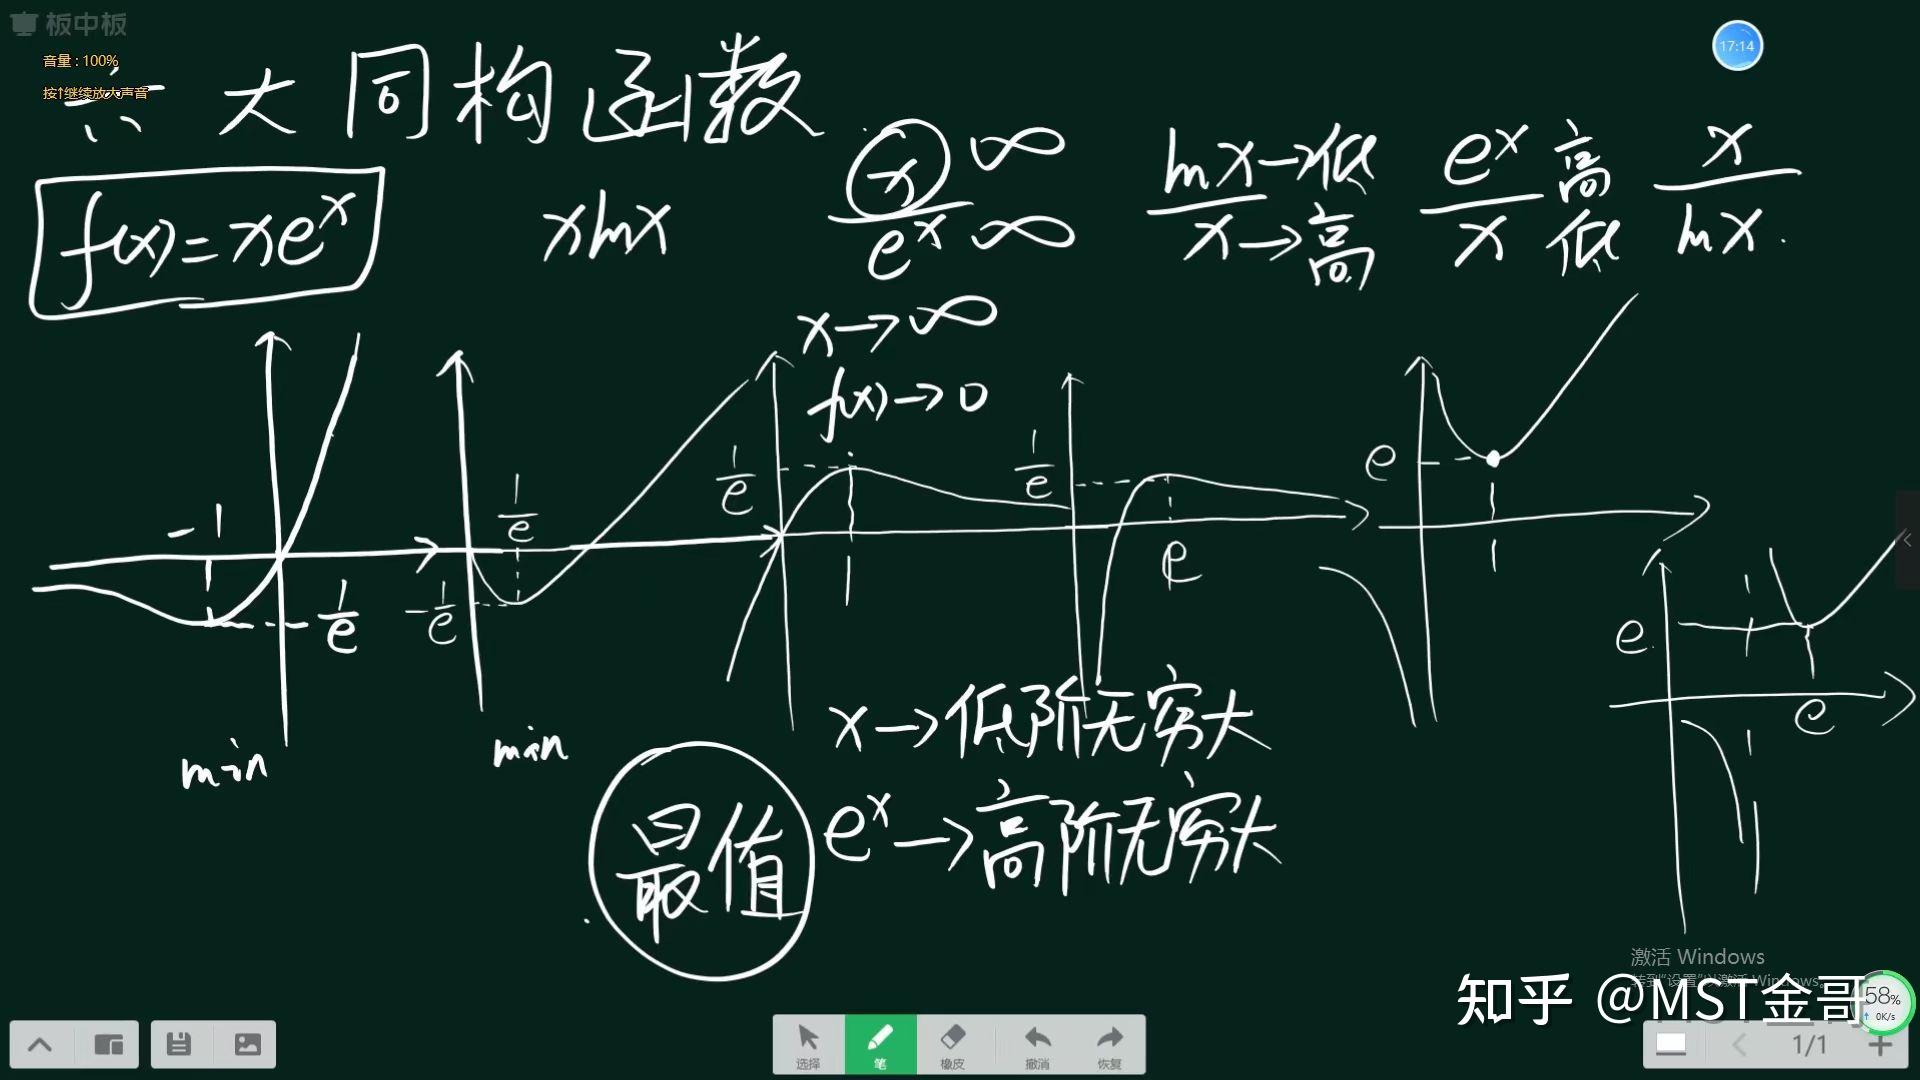 板中板
音量 : 100%
按↑继续放大声音
17:14
六大同构函数
f(x)=xe^x
xlnx
x ∞
e^x ∞
lnx→低
x→高
e^x 高
x 低
x
lnx.
x→∞
f(x)→0
-1
-1/e
min
1/e
-1/e
min
1/e
1
1/e
e
e
1
e
1
e
x→低阶无穷大
e^x→高阶无穷大
最值
激活 Windows
转到"设置"以激活 Windows。
知乎 @MST金哥
58%
0K/s
选择
笔
橡皮
撤消
恢复
1/1